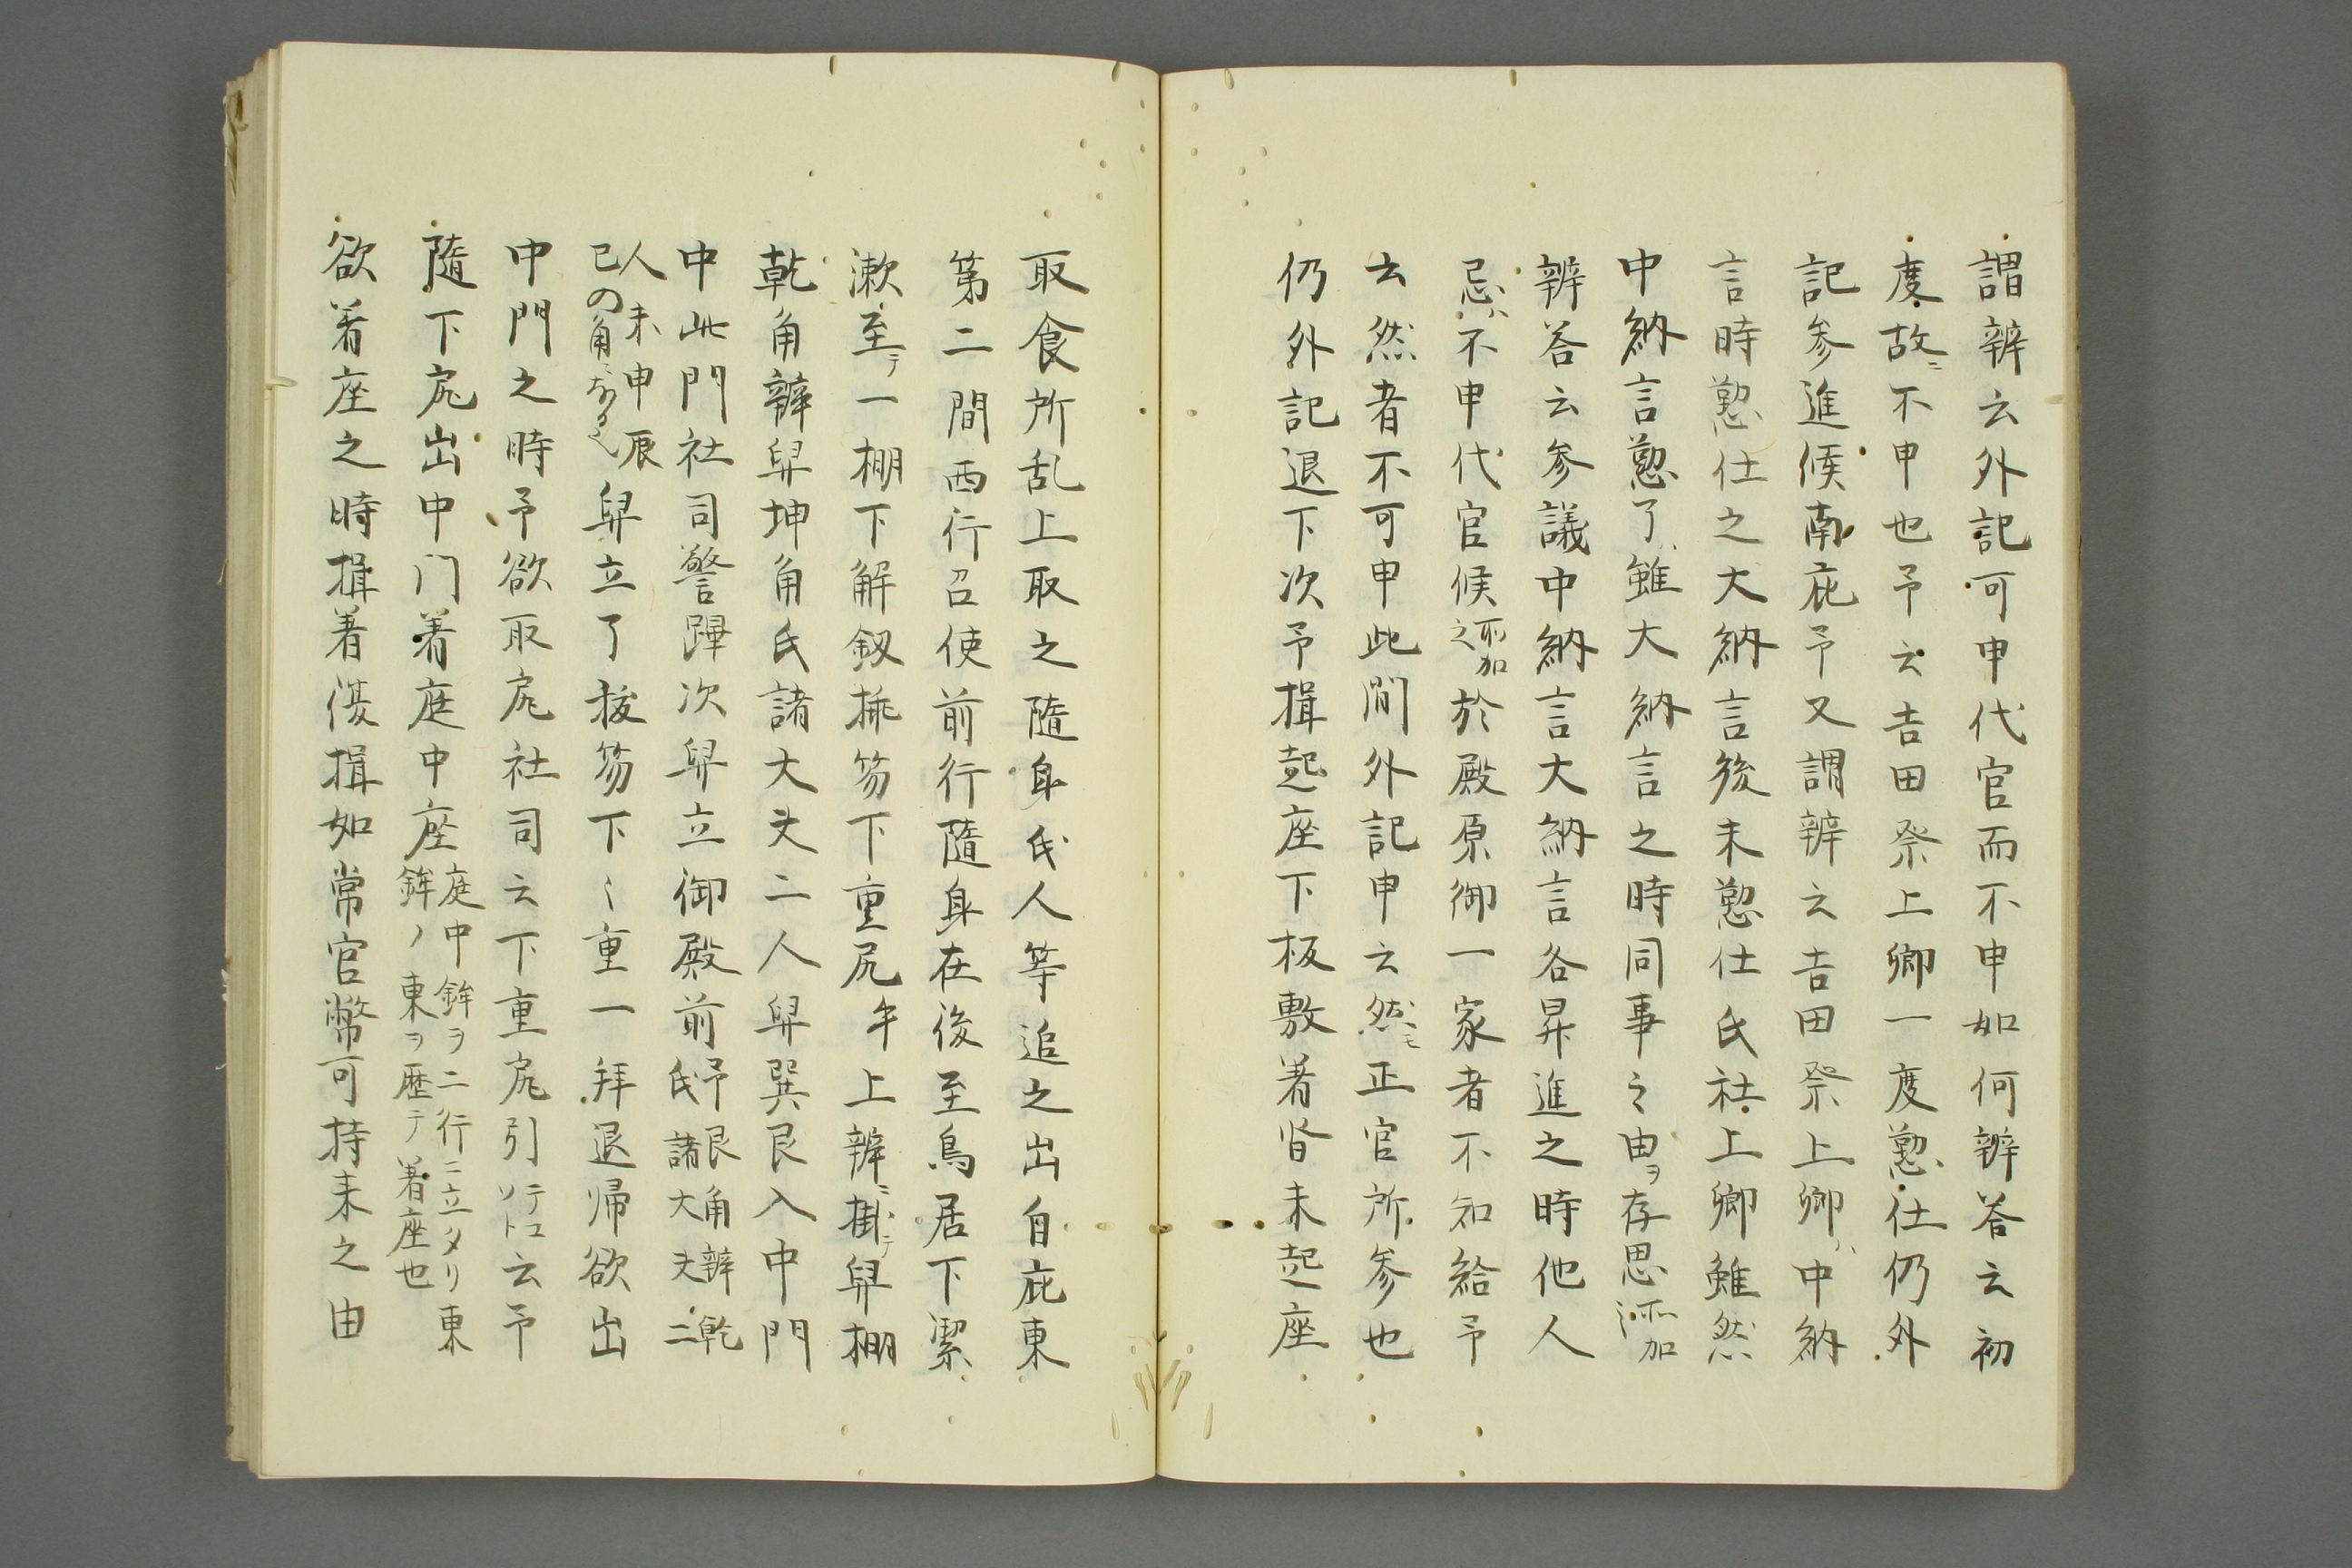 謂辨云外記可申代官而不申如何辨答云初
度故ニ不申也予云吉田祭上卿一度懃仕仍外
記参進候南庇予又謂辨云吉田祭上卿ハ中納
言時懃仕之大納言後未懃仕氏社上卿雖然
中納言懃了雖大納言之時同事之由ヲ存思
辨答云参議中納言大納言各昇進之時他人
忌ハ不申代官候不加之於殿原御一家者不知給予
云然者不可申此間外記申云然モ正官所参也
仍外記退下次予揖起座下板敷著沓未起座
取食所乱上取之隨身氏人等追之出自庇東
第二間西行召使前行隨身在後至鳥居下潔
漱至テ一棚下解釼挿笏下重尻上辨ニ掛テ舁棚
乾角辨舁坤角氏諸大夫二人舁巽艮入中門
中此門社司警蹕次舁立御殿前予艮角辨乾
氏諸大夫二
人未申辰
巳の角ニ舁立了抜笏下々重一拝退帰欲出
中門之時予欲取尻社司云下重尻引テコソト云予
隨下尻出中门著庭中座庭中鉾ヲ二行ニ立タリ東
鉾ノ東ヲ歴テ著座也
欲着座之時揖著後揖如常官幣可持来之由